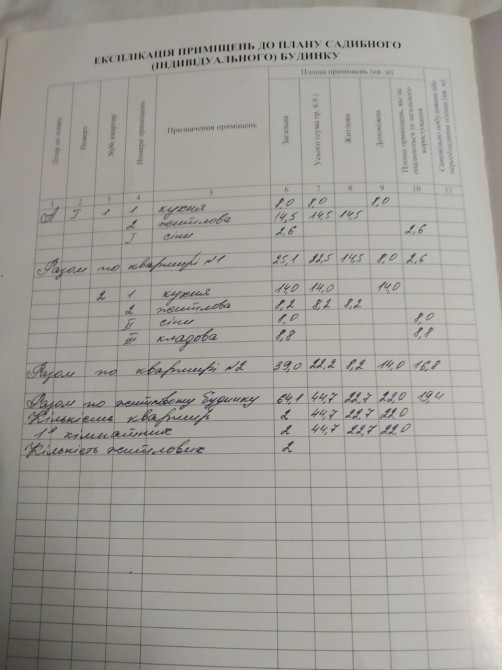 ЕКСПЛІКАЦІЯ ПРИМІЩЕНЬ ДО ПЛАНУ САДИБНОГО
(ІНДИВІДУАЛЬНОГО) БУДИНКУ
Літер по плану
Поверх
№№ квартир
Номери приміщень
Призначення приміщень
Площа приміщень (кв. м)
Загальна
Усього (сума гр. 8,9.)
Житлова
Допоміжна
Площа приміщень, які не
опалюються та загального
користування
Самовільно побудовані або
переобладнані площі (кв. м)
1 2 3 4 5 6 7 8 9 10 11
А I 1 1 кухня 8,0 8,0 8,0
2 житлова 14,5 14,5 14,5
I сіни 2,6 2,6
Разом по квартирі №1 25,1 22,5 14,5 8,0 2,6
2 1 кухня 14,0 14,0 14,0
2 житлова 8,2 8,2 8,2
II сіни 8,0 8,0
III кладова 8,8 8,8
Разом по квартирі №2 39,0 22,2 8,2 14,0 16,8
Разом по житловому будинку 64,1 44,7 22,7 22,0 19,4
Кількість квартир 2 44,7 22,7 22,0
1о кімнатних 2 44,7 22,7 22,0
Кілсність житлових 2